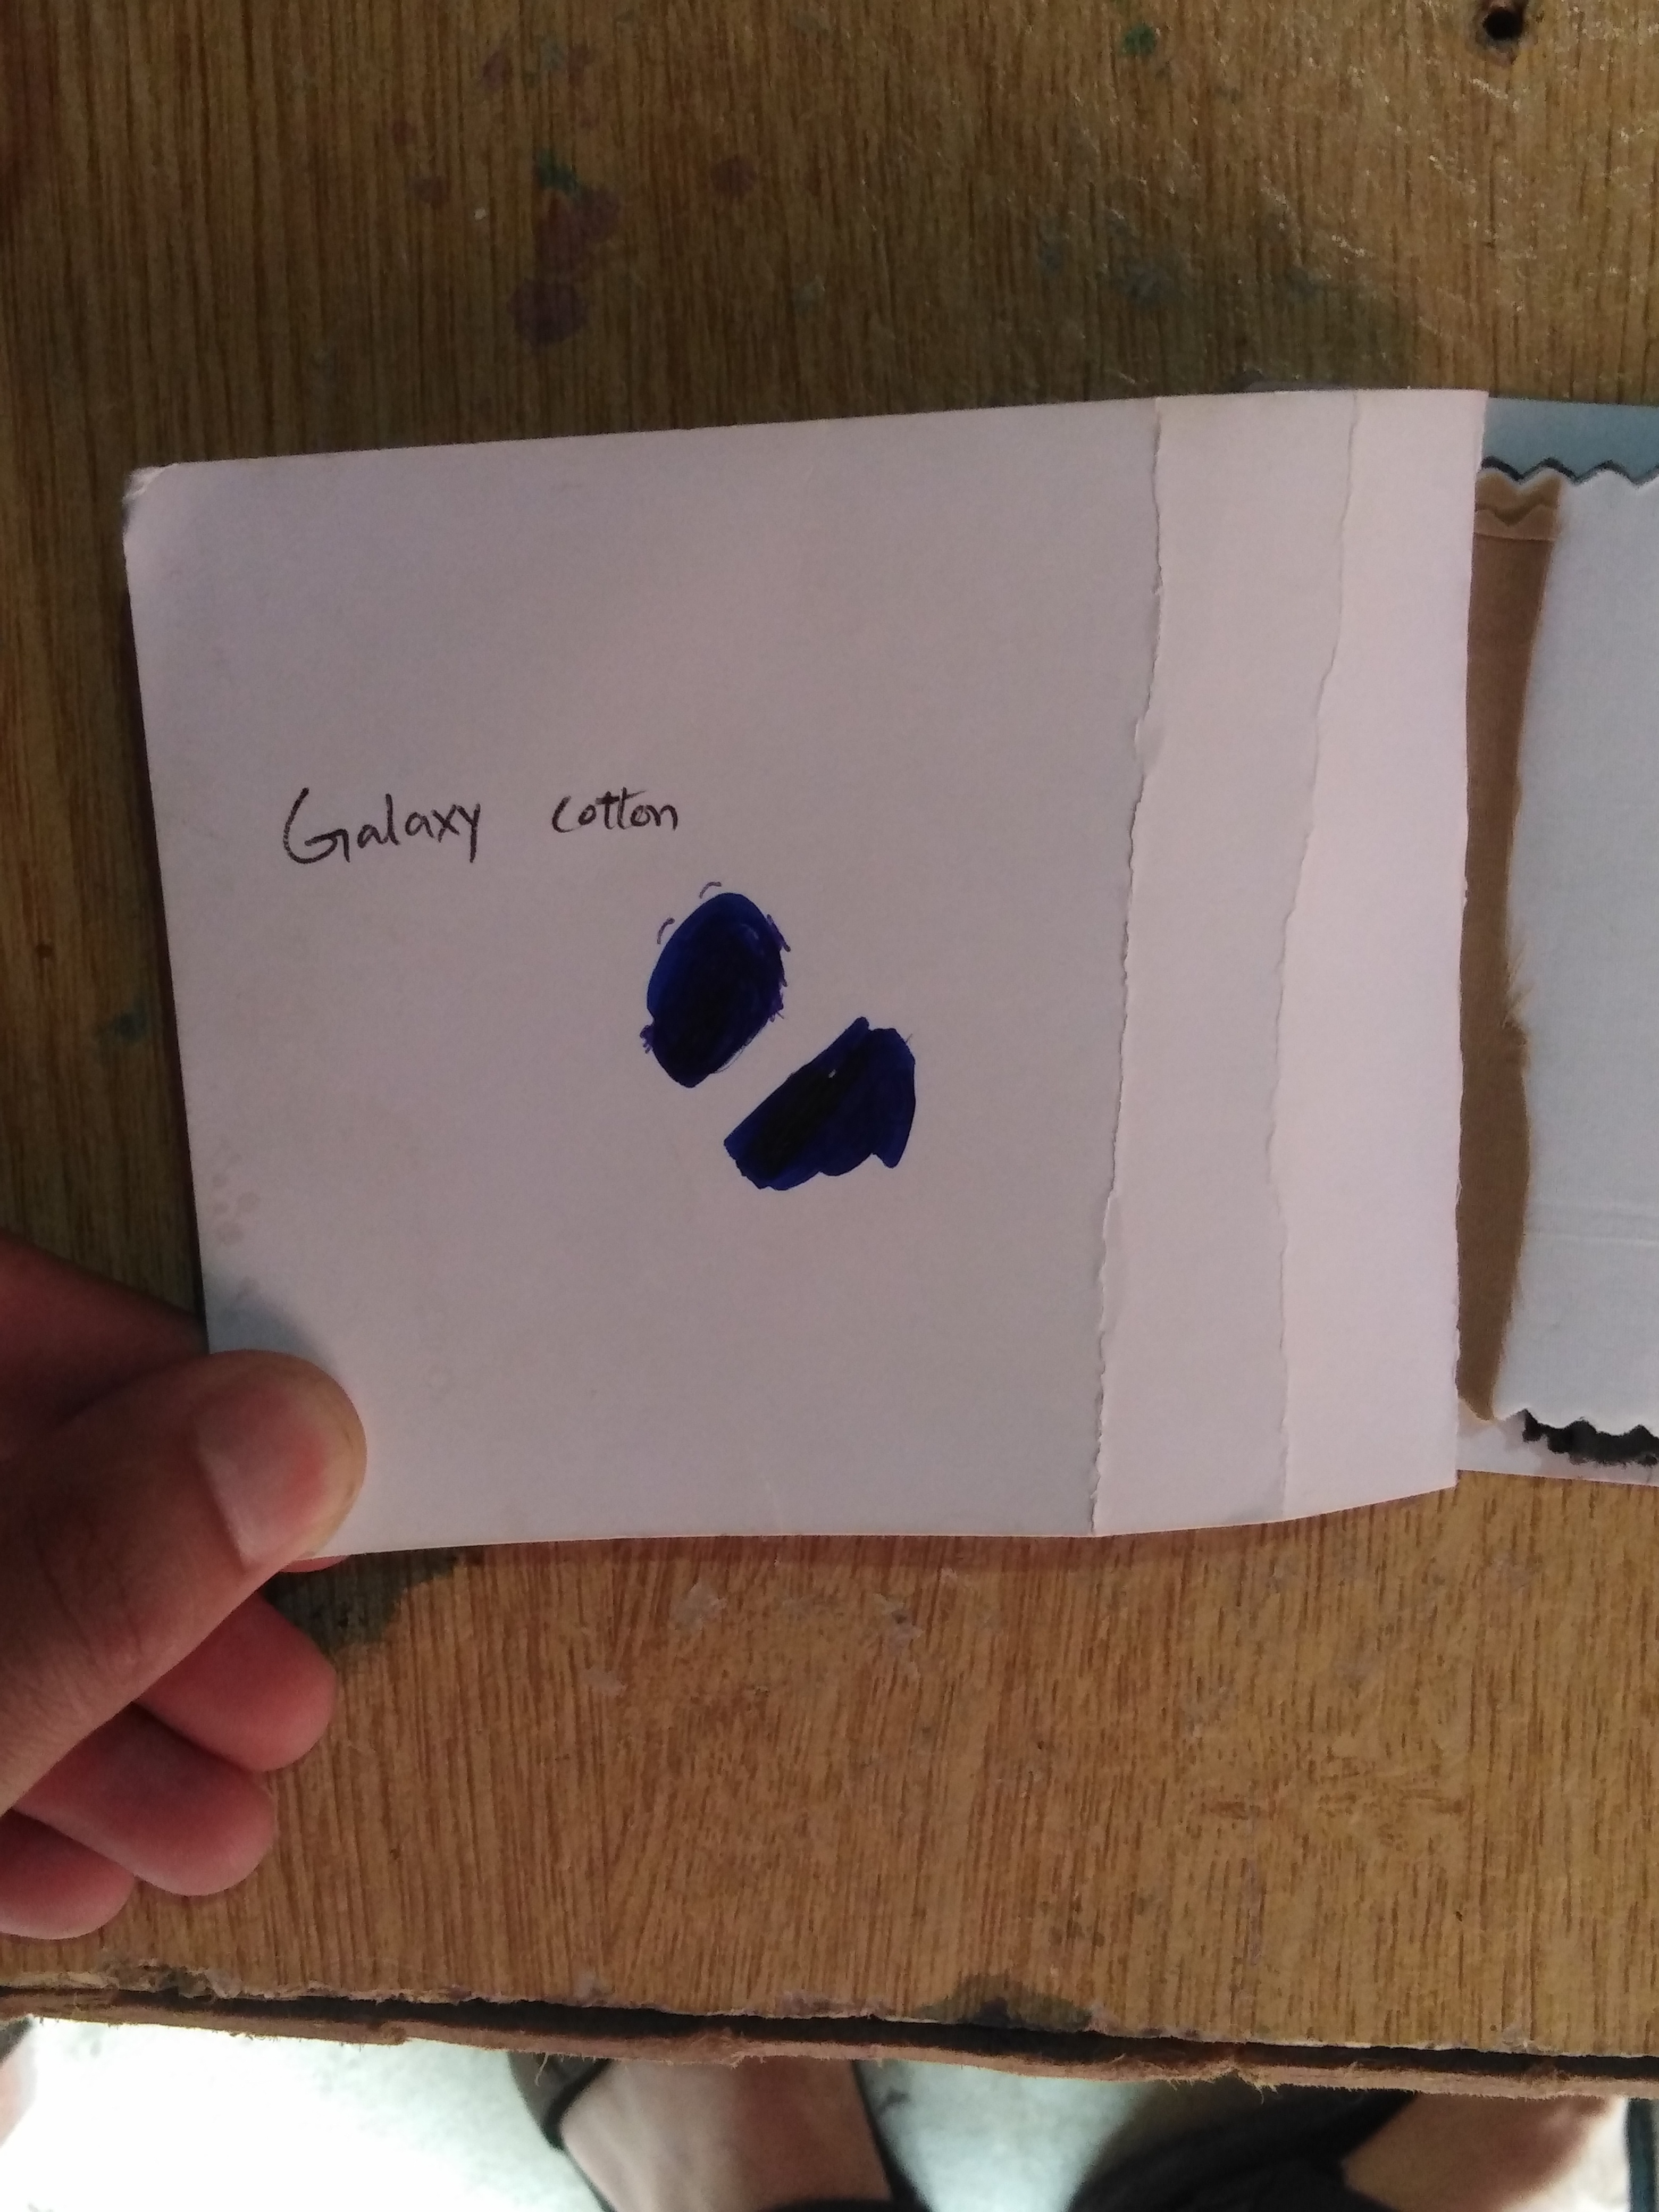 Galaxy cotton